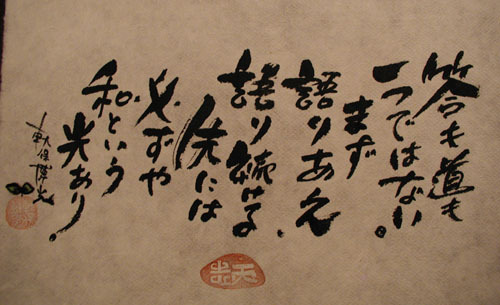 答も道も
一つではない。
まず
語りあえ
語り続ける
先には
必ずや
和という
光あり